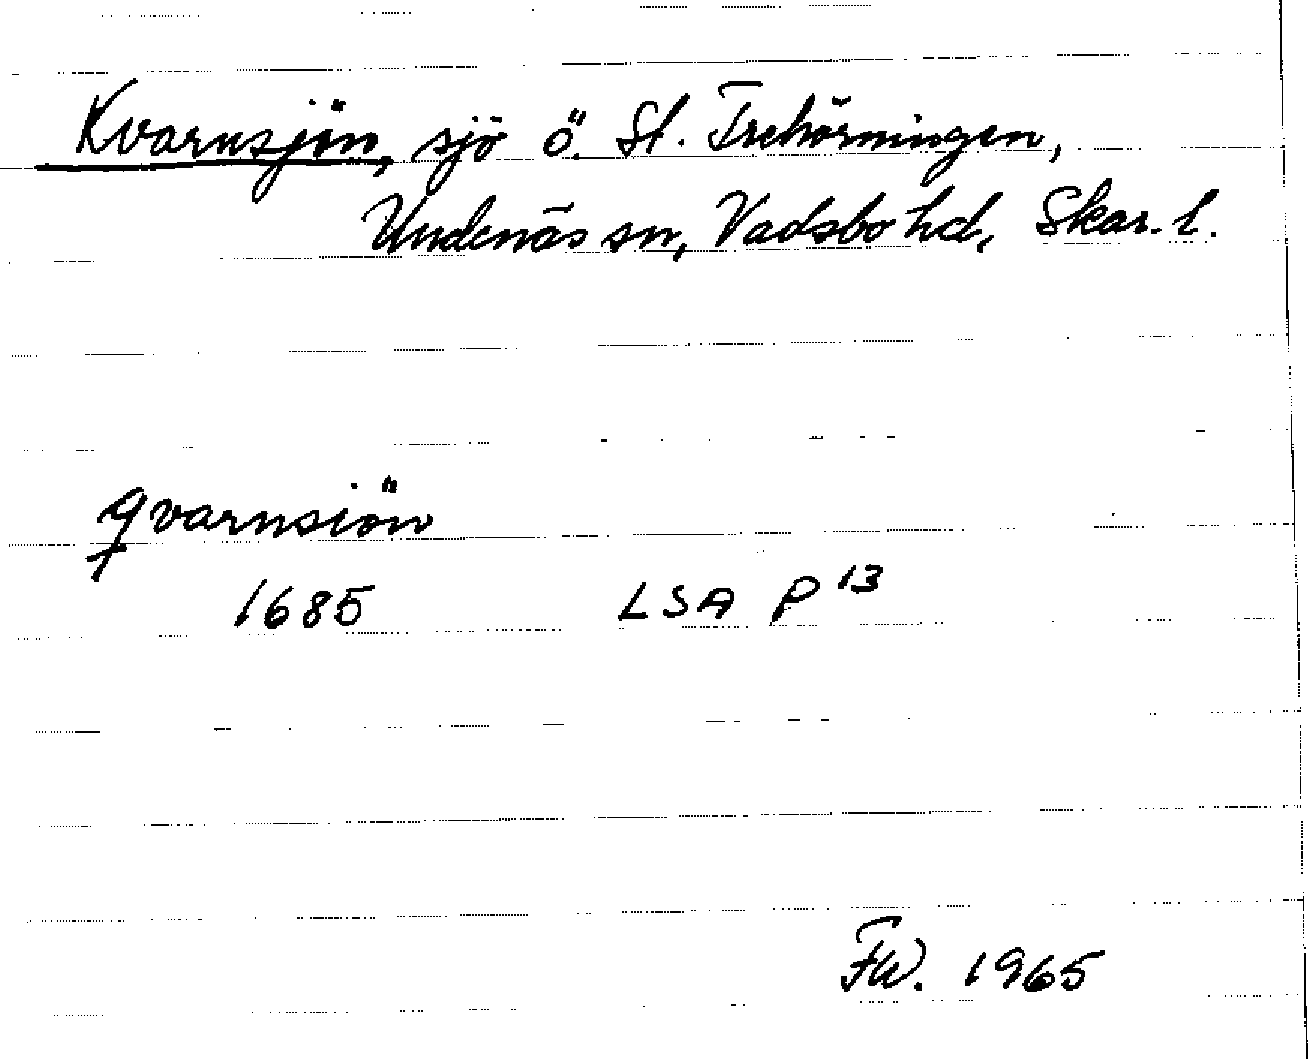 Kvarnsjön, sjö ö. St. Trehörningen,
Undenäs sn, Vadsbo hd, Skar. l.
qvarnsiön
1685 LSA P 13
FW. 1965